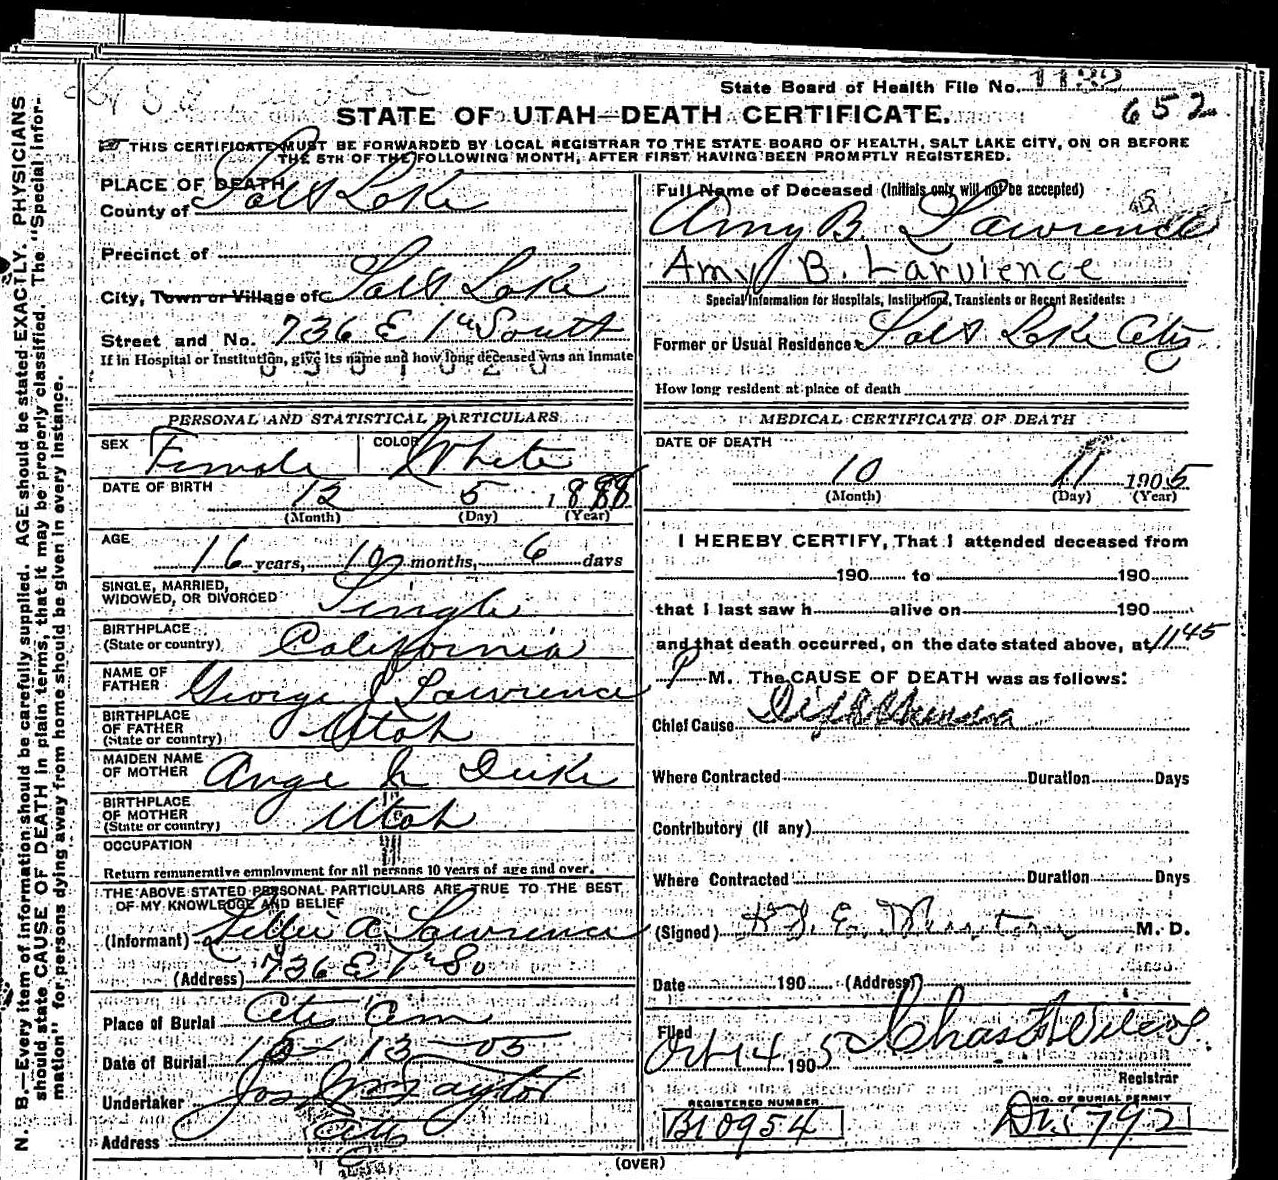 State Board of Health File No. 1122
652
STATE OF UTAH—DEATH CERTIFICATE.
THIS CERTIFICATE MUST BE FORWARDED BY LOCAL REGISTRAR TO THE STATE BOARD OF HEALTH, SALT LAKE CITY, ON OR BEFORE
THE 5TH OF THE FOLLOWING MONTH, AFTER FIRST HAVING BEEN PROMPTLY REGISTERED.
N. B.—Every item of information should be carefully supplied. AGE should be stated EXACTLY. PHYSICIANS
should state CAUSE OF DEATH in plain terms, that it may be properly classified. The "Special Infor-
mation" for persons dying away from home should be given in every instance.
PLACE OF DEATH
County of Salt Lake
Precinct of
City, Town or Village of Salt Lake
Street and No. 736 E 1st South
If in Hospital or Institution, give its name and how long deceased was an Inmate
Full Name of Deceased (Initials only will not be accepted)
Amy B. Lawrence
Amy B. Larvience
Special Information for Hospitals, Institutions, Transients or Recent Residents:
Former or Usual Residence Salt Lake City
How long resident at place of death
PERSONAL AND STATISTICAL PARTICULARS
SEX Female COLOR White
DATE OF BIRTH 12 5 1888
(Month) (Day) (Year)
AGE
16 years, 10 months, 6 days
SINGLE, MARRIED,
WIDOWED, OR DIVORCED Single
BIRTHPLACE
(State or country) California
NAME OF
FATHER George J Lawrence
BIRTHPLACE
OF FATHER
(State or country) Utah
MAIDEN NAME
OF MOTHER Duke
BIRTHPLACE
OF MOTHER
(State or country) Utah
OCCUPATION
Return remunerative employment for all persons 10 years of age and over.
THE ABOVE STATED PERSONAL PARTICULARS ARE TRUE TO THE BEST
OF MY KNOWLEDGE AND BELIEF
(Informant) A Lawrence
(Address) 736 E 1st So
Place of Burial City Cem
Date of Burial 13-05
Undertaker Jos Wm Taylor
Address City
MEDICAL CERTIFICATE OF DEATH
DATE OF DEATH
10 11 1905
(Month) (Day) (Year)
I HEREBY CERTIFY, That I attended deceased from
190 to 190
that I last saw h alive on 190
and that death occurred, on the date stated above, at 11 45
P M. The CAUSE OF DEATH was as follows:
Chief Cause
Where Contracted Duration Days
Contributory (if any)
Where Contracted Duration Days
(Signed) M. D.
Date 190 (Address)
Filed
Oct 14 1905 Chas
Registrar
REGISTERED NUMBER
B10954
NO. OF BURIAL PERMIT
5792
(OVER)